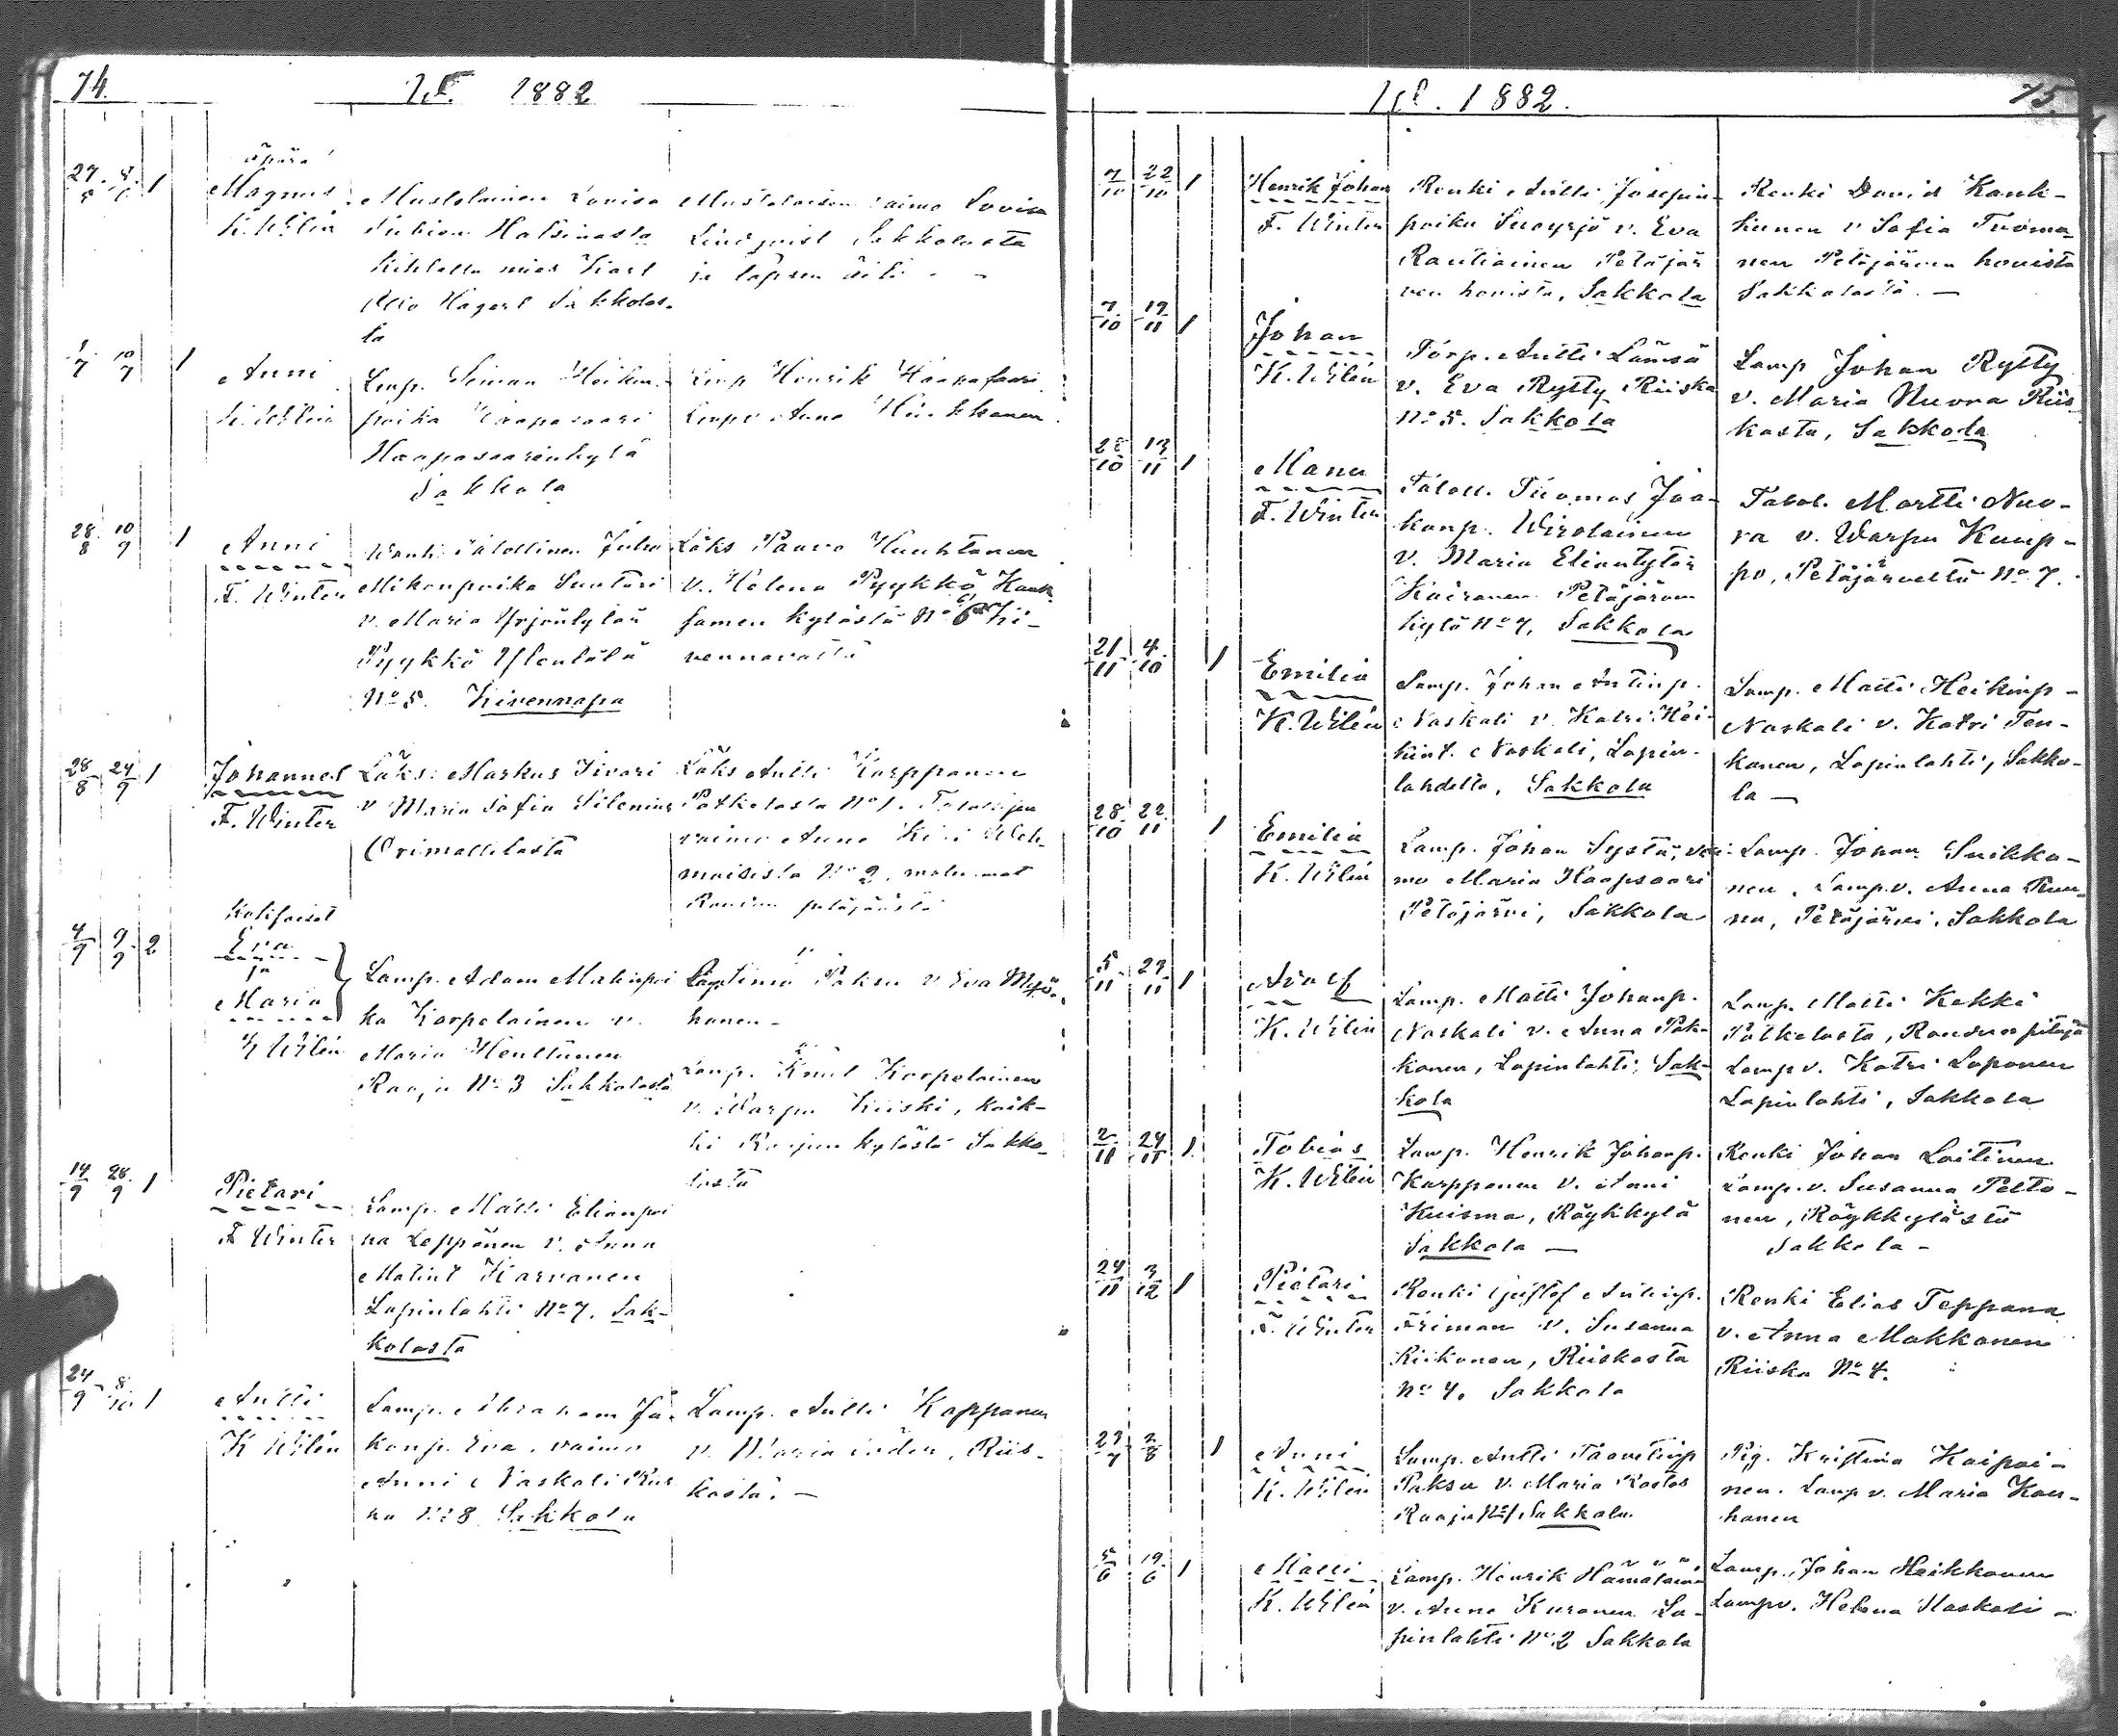 74.
1882
27 8 1
äpärä
Magnus
K. Wilén
Mustalainen Lovisa
Halsinasta
Kihlattu mies Karl
Otto Hagert Sakkolas-
ta
Mustalaisen vaimo Lovisa
Lindqvist Sakkolasta
ja lapsen äiti
1/7 10/7 1
Anni
K. Wilén
Lmp. Siman Heikin-
poika Haapasaari
Haapasaarenkylä
Sakkola
Lmp Henrik Haapasaari
Lmpv Anna Hiukkanen
28/8 10/9 1
Anni
F. Winter
Talollinen Juho
Mikonpoika Suutari
v. Maria Yrjöntytär
Pyykkö Ylentälä
No 5. Kivennapa
Läks Paavo Huuhtanen
v. Helena Pyykkö Hauk-
samen kylästä No 6 Ki-
vennavalta
28/8 24/9 1
Johannes
F. Winter
Läks. Markus Iivari
v Maria Sofia Silenius
Orimattilasta
Läks Antti Karppanen
Potkelasta No 1. Talollisen
vaimo Anna Kiri Weh-
maisista No 2, molemmat
Raudun pitäjästä
4/9 9/9 2
Kaksoiset
Eva
ja
Maria
K Wilén
Lamp. Adam Matinpoi
ka Karpelainen v.
Maria Henttunen
Raaju No 3 Sakkolasta
Lamp. Simo Paksu v Eva
honen-
Lamp. Knut Karpelainen
v. Warpu Kiiski, kaik-
ki Raajun kylästä Sakko-
lasta
14/9 28/9 1
Pietari
F Winter
Lamp. Matti Elianpoi
ka Leppänen v. Anna
Matint Karvanen
Lapinlahti No 7. Sak-
kolasta
24/9 8/10 1
Antti
K Wilén
Lamp. Abraham Jaa-
konp. Eva, vaimo
Anni Naskali
No 8 Sakkola
Lamp. Antti Kappanen
v. Maria Riis-
kasta. —
1882.
75.
7/10 22/10 1
Henrik Johan
F. Winter
Renki Antti Josepin-
poika Suoyrjö v. Eva
Rautiainen Petäjär
ven hovista, Sakkola
Renki David Kauk-
hunen v Sofia Tuoma-
nen Petäjärven hovista
Sakkolasta. —
7/10 19/11 1
Johan
K. Wilén
Torp. Antti Lämsä
v. Eva Rytty Riiska
No 5. Sakkola
Lamp Johan Rytty
v. Maria Nuora Riis-
kasta, Sakkola
28/10 13/11 1
F. Winter
Taloll. Tuomas Jaa-
konp. Wirolainen
v. Maria Eliantytär
Kairanen Petäjärven
kylä No 7, Sakkola
Talol. Martti Nuo-
ra v. Warpu Kemp-
po, Petäjärveltä No 7.
21/11 4/10 1
Emilia
K. Wilén
Lamp. Johan Antinp.
Naskali v. Katri Hei-
kint. Naskali, Lapin-
lahdelta, Sakkola
Lamp. Matti Heikinp-
Naskali v. Katri Ton-
kanen, Lapinlahti, Sakko-
la —
28/10 22/11 1
Emilia
K. Wilén
Lamp. Johan Systä, vai-
mo Maria Haapsaari
Petäjärvi, Sakkola
Lamp. Johan Suikka-
nen, Lamp.v. Anna Ruu-
na, Petäjärvi, Sakkola
5/11 27/11 1
Adolf
K. Wilén
Lamp. Matti Johanp.
Naskali v. Anna Pak-
kanen, Lapinlahti, Sak-
kola
Lamp. Matti Kekki
Potkelasta, Raudun pitäjä
Lamp v. Katri Loponen
Lapinlahti, Sakkola
2/11 27/11 1
Tobias
K. Wilén
Lamp. Henrik Johanp.
Karppanen v. Anni
Kuisma, Röykkylä
Sakkola —
Renki Johan Laitinen
Lamp.v. Susanna Pelto-
nen, Röykkylästä
Sakkola -
24/11 3/12 1
Pietari
F. Winter
Renki Gustof Antinp.
Friman v. Susanna
Riikonen, Riiskasta
No 4. Sakkola
Renki Elias Teppana
v. Anna Makkonen
Riiska No 4.
27/7 2/8 1
Anni
K. Wilén
Lamp. Antti Taavetinp
Paksu v. Maria Rastas
Raaju No 1 Sakkola.
Pig. Kristina Kaipai-
nen. Lamp v. Maria Kou-
honen
5/6 19/6 1
Matti
K. Wilén
Lamp. Henrik Hämäläinen
v. Anna Kuronen La-
pinlahti No 2 Sakkola
Lamp. Johan Heikkonen
Lampv. Helena Naskali —